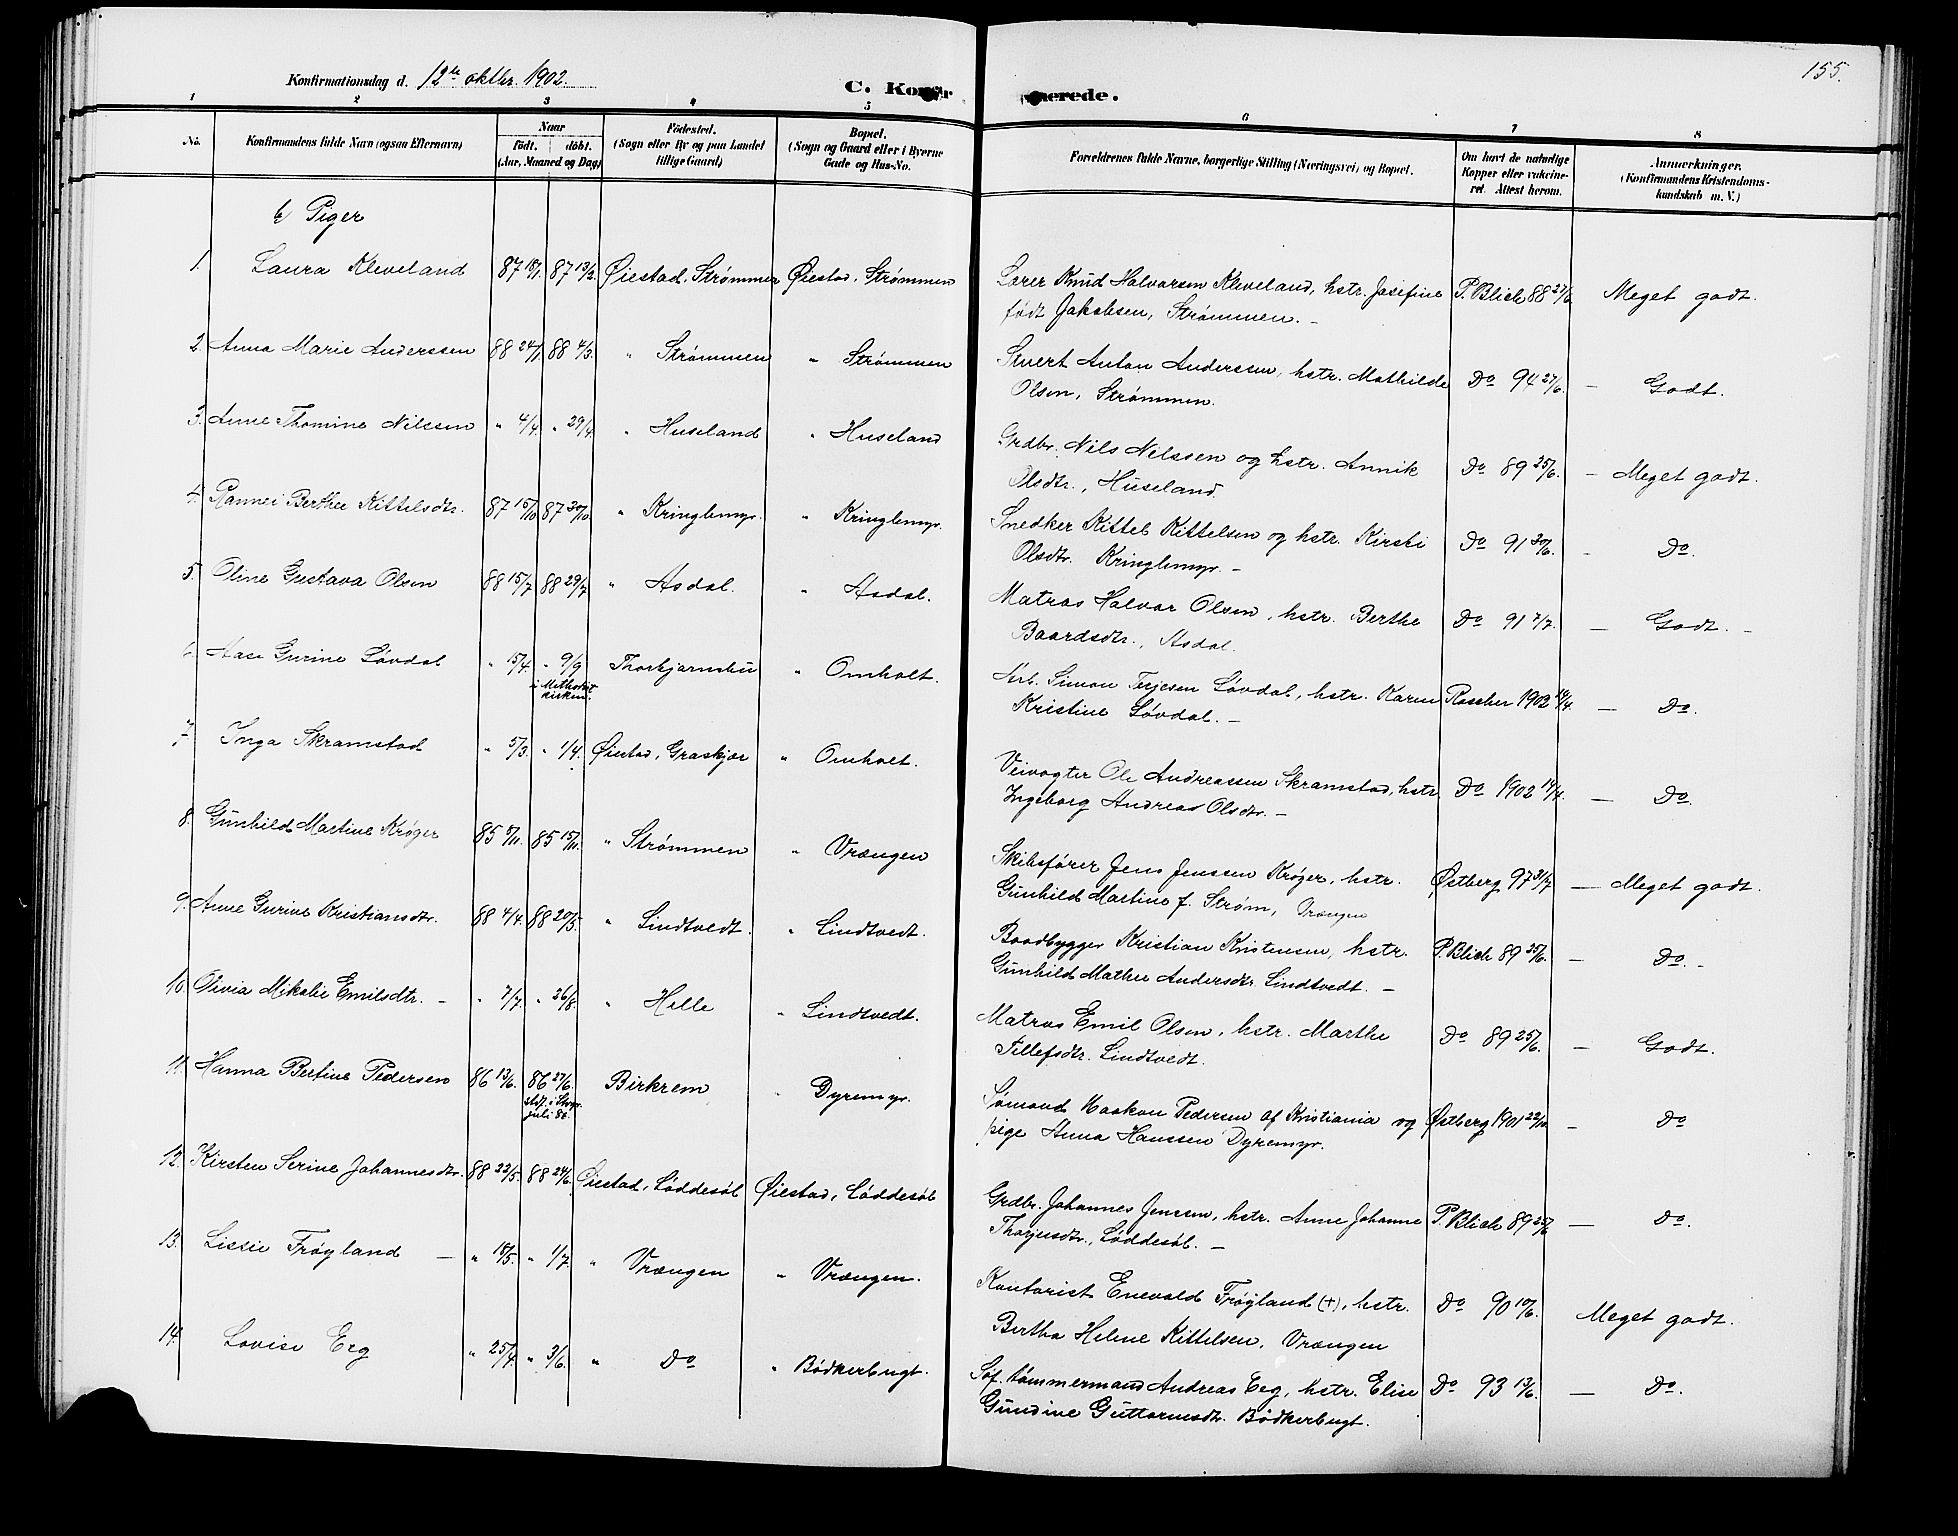 155.
Konfirmationsdag d. 12te oktbr. 1902.
C. Konfir merede.
1 2 3 4 5 6 7 8
No. Konfirmandens fulde Navn (ogsaa Efternavn) Naar födt. döbt. (Aar, Maaned og Dag) Födested. (Sogn eller By og paa Landet tillige Gaard) Bopæl. (Sogn og Gaard eller i Byerne Gade og Hus-No. Forældrenes fulde Navne, borgerlige Stilling (Næringsvei) og Bopæl. Om havt de naturlige Kopper eller vakcineret. Attest herom. Anmærkninger. (Konfirmandens Kristendomskundskab m. V.)
b Piger
1. Laura Kleveland 87 18/1. 87 13/2. Øiestad, Strømmen Øiestad, Strømmen Lærer Knud Halvorsen Kleveland, hstr. Josefine P. Blich 88 27/6 Meget godt.
født Jakobsen, Strømmen. –
2. Anna Marie Anderssen 88 24/1. 88 4/3. " Strømmen " Strømmen Stuert Anton Anderssen, hstr. Mathilde Do 94 27/6. – Godt.
Olsen, Strømmen.
3. Anne Thomine Nilssen " 4/4. " 29/4 " Huseland " Huseland Grdbr. Nils Nilssen og hstr. Annik Do 89 25/6. – Meget godt.
Olsdtr., Huseland.
4. Rannei Berthea Kittelsdtr. 87 15/10 87 30/10 " Kringlemyr. " Kringlemyr. Snedker Kittel Kittelsen og hstr. Kirsti Do 91 30/6. – Do.
Olsdtr. Kringlemyr. –
5. Oline Gustava Olsen 88 15/7 88 29/7 " Asdal. " Asdal. Matros Halvor Olsen, hstr. Berthe Do 91 7/7. – Godt. –
Baardsdtr., Asdal.
6. Aase Gurine Løvdal " 15/4. " 9/9 i Methodistkirken. " Omholt. Arb. Simon Terjesen Løvdal, hstr. Karen 1902 – Do.
Kristine Løvdal. –
7. Inga Skramstad " 5/3. " 1/4. Øiestad, Graskjær " Omholt. Veivogter Ole Andreassen Skramstad, hstr. Do 1902 14/4. – Do.
Ingeborg Andrea Olsdtr. –
8. Gunhild Martine Krøger 85 85 15/11. " Strømmen " Vrængen Skibsfører Jens Jenssen Krøger, hstr. Østberg 97 31/7 – Meget godt.
Gunhild Martine f. Strøm, Vrængen
9. Anne Gurine Kristiansdtr. 88 4/4. 88 20/5. " Lindtvedt. " Lindtvedt. Baadbygger Kristian Kristensen, hstr. P. Blich 89 25/6. – Do. –
Gunhild Mathea Andersdtr. Lindtvedt. –
10. Olivia Mikalie Emilsdtr. – " 7/7. " 26/8. " Helle " Lindtvedt. Matros Emil Olsen, hstr. Marthe Do 89 25/6. – Godt.
Tellefsdtr. Lindtvedt.
11. Hanna Bertine Pedersen 86 13/6. 86 27/6. juli 86. Birkrem " Dyremyr. Sømand Haakon Pedersen af Kristiania og Østberg 1901 22/10 – Do
pige Anna Hanssen Dyremyr.
12. Kirsten Serine Johannesdtr. 88 22/5. 88 24/6. Øiestad, Løddesøl Øiestad, Løddesøl Grdbr. Johannes Jenssen, hstr. Anne Johanne P. Blich 89 25/6 – Do.
Løddesøl. –
13. Lissie Frøyland – " 18/5. " 1/7. " Vrængen " Vrængen. Kontorist Enevald Frøyland (+), hstr. Do 90 10/6. Meget godt.
Bertha Helene Kittelsen, Vrængen
14. Lovise Eeg " 25/4 " 3/6. " Do " Bödkerbugt. tømmermand Andreas Eeg, hstr. Elise Do 93 13/6. – Do.
Gundine Guttormsdtr. Bödkerbugt.